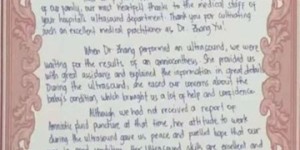 of our family, our most heartfelt thanks to the medical staff of
your hospital's ultrasound department. Thank you for cultivating
such an excellent medical practitioner as Dr. Zhang Yu!
When Dr. Zhang performed an ultrasound, we were
waiting for the results of an amniocentesis. She provided us
with great assistance and explained the information in great details
During the ultrasound, she eased our concerns about the
baby's condition, which brought us a lot of help and confidence
Although we had not received a report of
Amniotic fluid puncture at that time, her attitude to work
during the ultrasound gave us peace and hope that our
ultrasound skills are excellent and